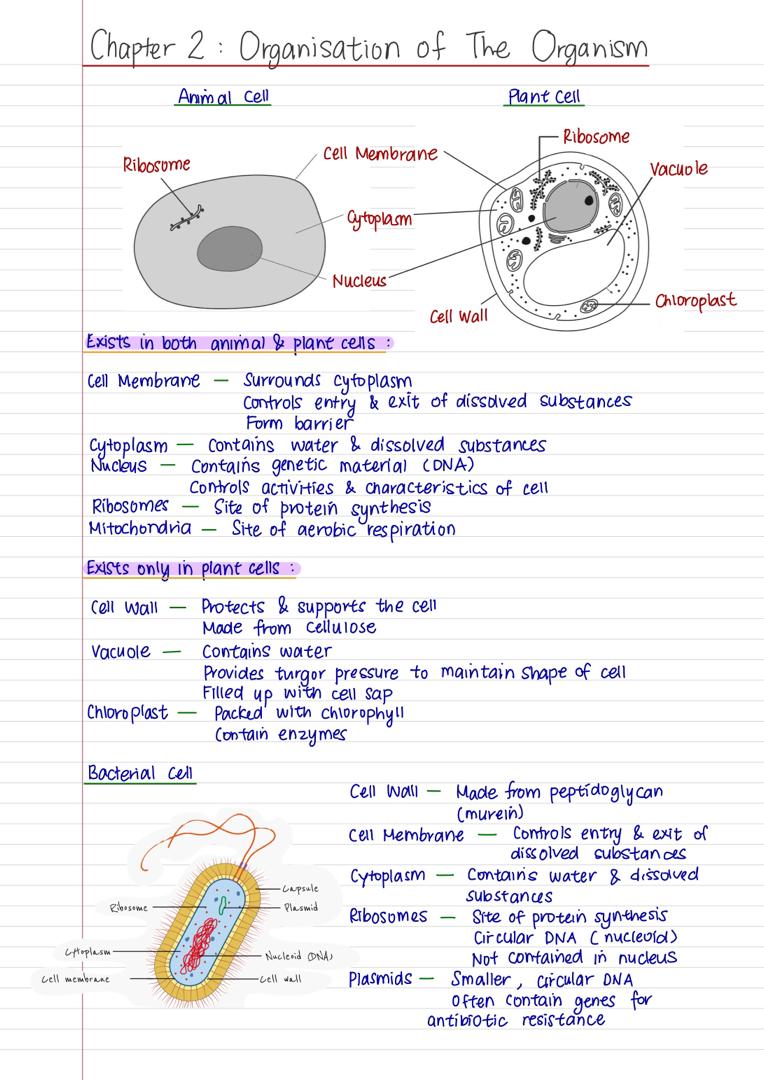 Chapter 2 : Organisation of The Organism
Animal Cell
Plant Cell
Ribosome
Cell Membrane
Ribosome
Vacuole
Cytoplasm
Nucleus
Cell Wall
Chloroplast
Exists in both animal & plant cells :
Cell Membrane — Surrounds cytoplasm
Controls entry & exit of dissolved substances
Form barrier
Cytoplasm — Contains water & dissolved substances
Nucleus — Contains genetic material (DNA)
Controls activities & characteristics of cell
Ribosomes — Site of protein synthesis
Mitochondria — Site of aerobic respiration
Exists only in plant cells :
Cell Wall — Protects & supports the cell
Made from cellulose
Vacuole — Contains water
Provides turgor pressure to maintain shape of cell
Filled up with cell sap
Chloroplast — Packed with chlorophyll
Contain enzymes
Bacterial Cell
Capsule
Ribosome
Plasmid
Cytoplasm
Nucleoid (DNA)
Cell membrane
Cell wall
Cell Wall — Made from peptidoglycan
(murein)
Cell Membrane — Controls entry & exit of
dissolved substances
Cytoplasm — Contains water & dissolved
substances
Ribosomes — Site of protein synthesis
Circular DNA (nucleoid)
Not contained in nucleus
Plasmids — Smaller, circular DNA
Often contain genes for
antibiotic resistance